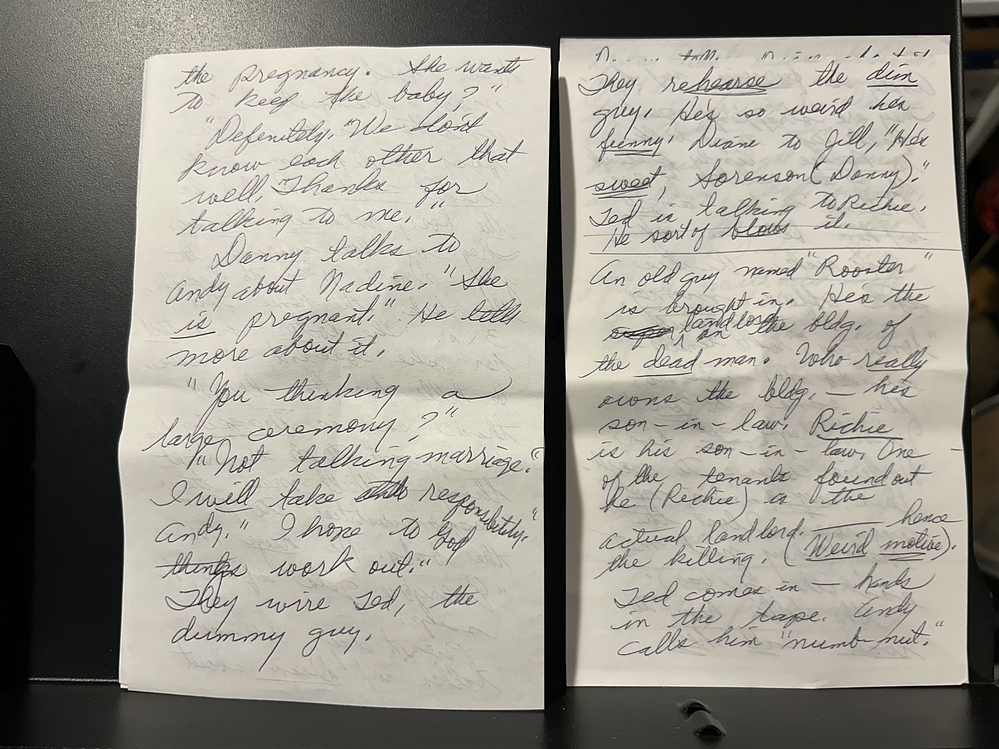 the pregnancy. She wants
to keep the baby?"
"Defenitely. "We don't
know each other that
well. Thanks for
talking to me."
Danny talks to
Andy about Nadine. "She
is pregnant." He tells
more about it.
"You thinking a
large ceremony?"
"Not talking marriage."
I will take responsibility."
Andy." I hope to God
things work out."
They wire Ted, the
dummy guy.
They rehearse the dim
guy. He's so weird he's
funny. Diane to Jill, "He's
sweet, Sorenson (Danny)."
Ted is talking to Richie.
He sort of blows it.
An old guy named "Rooster"
is brought in. He's the
landlord, on the bldg. of
the dead man. Who really
owns the bldg. — his
son-in-law. Richie
is his son-in-law. One
of the tenants found out
he (Richie) is the
actual landlord. hence
the killing. (Weird motive).
Ted comes in — hands
in the tape. Andy
calls him "numb-nut."